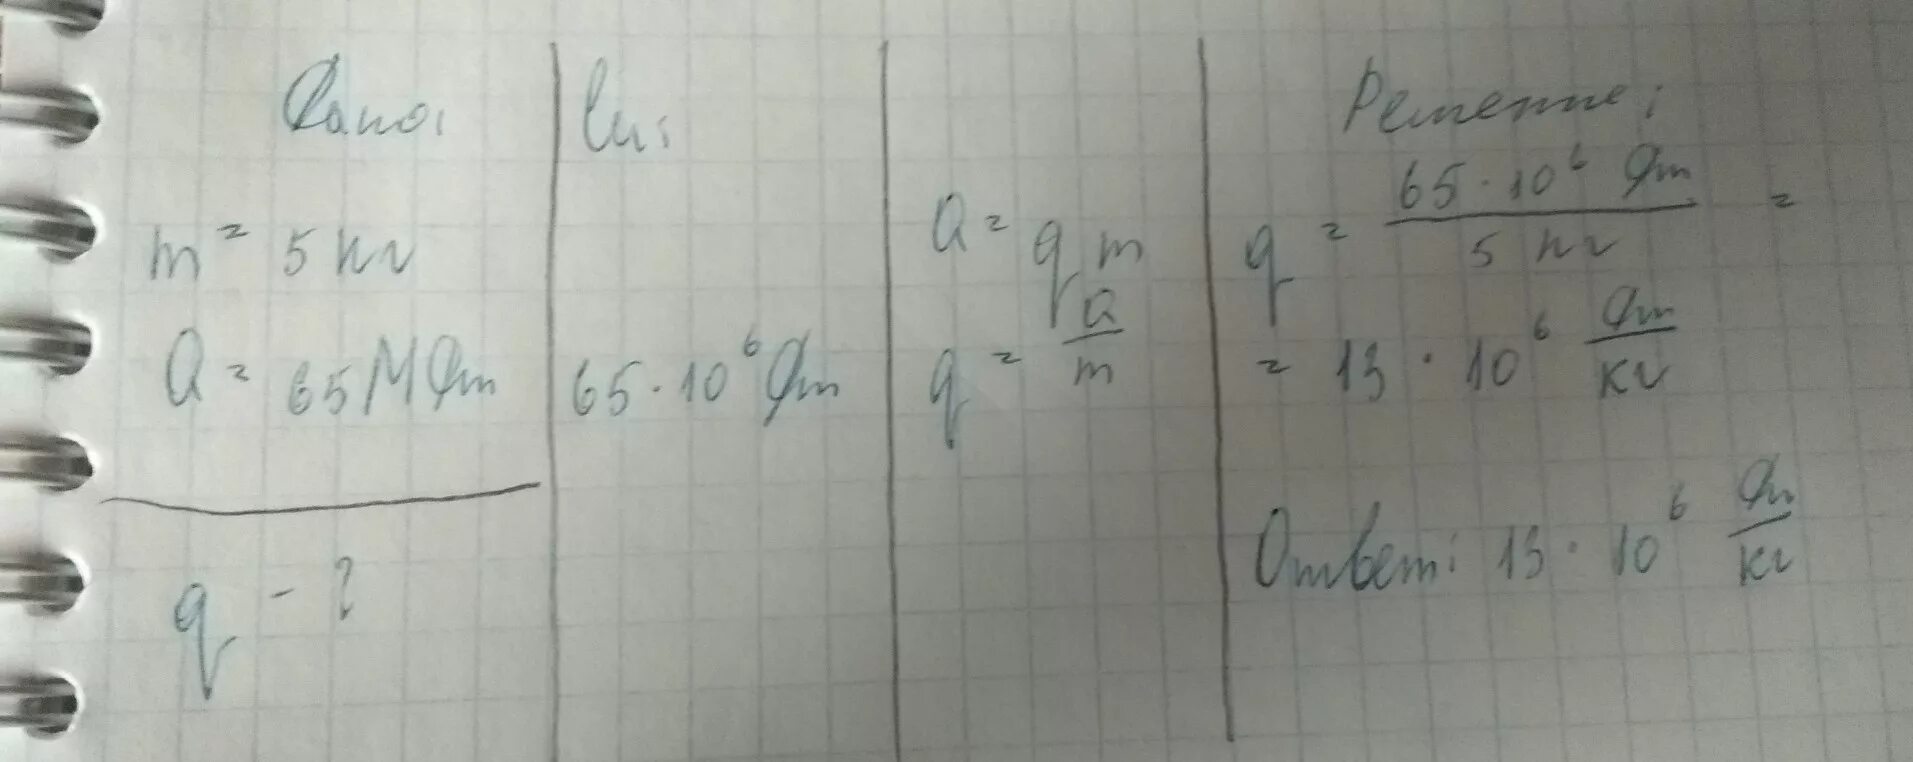 Дано:
m = 5 кг
Q = 65 МДж
q - ?
Си:
65 · 10⁶ Дж
Q = q m
q = Q/m
Решение:
q = 65 · 10⁶ Дж / 5 кг =
= 13 · 10⁶ Дж/кг
Ответ: 13 · 10⁶ Дж/кг